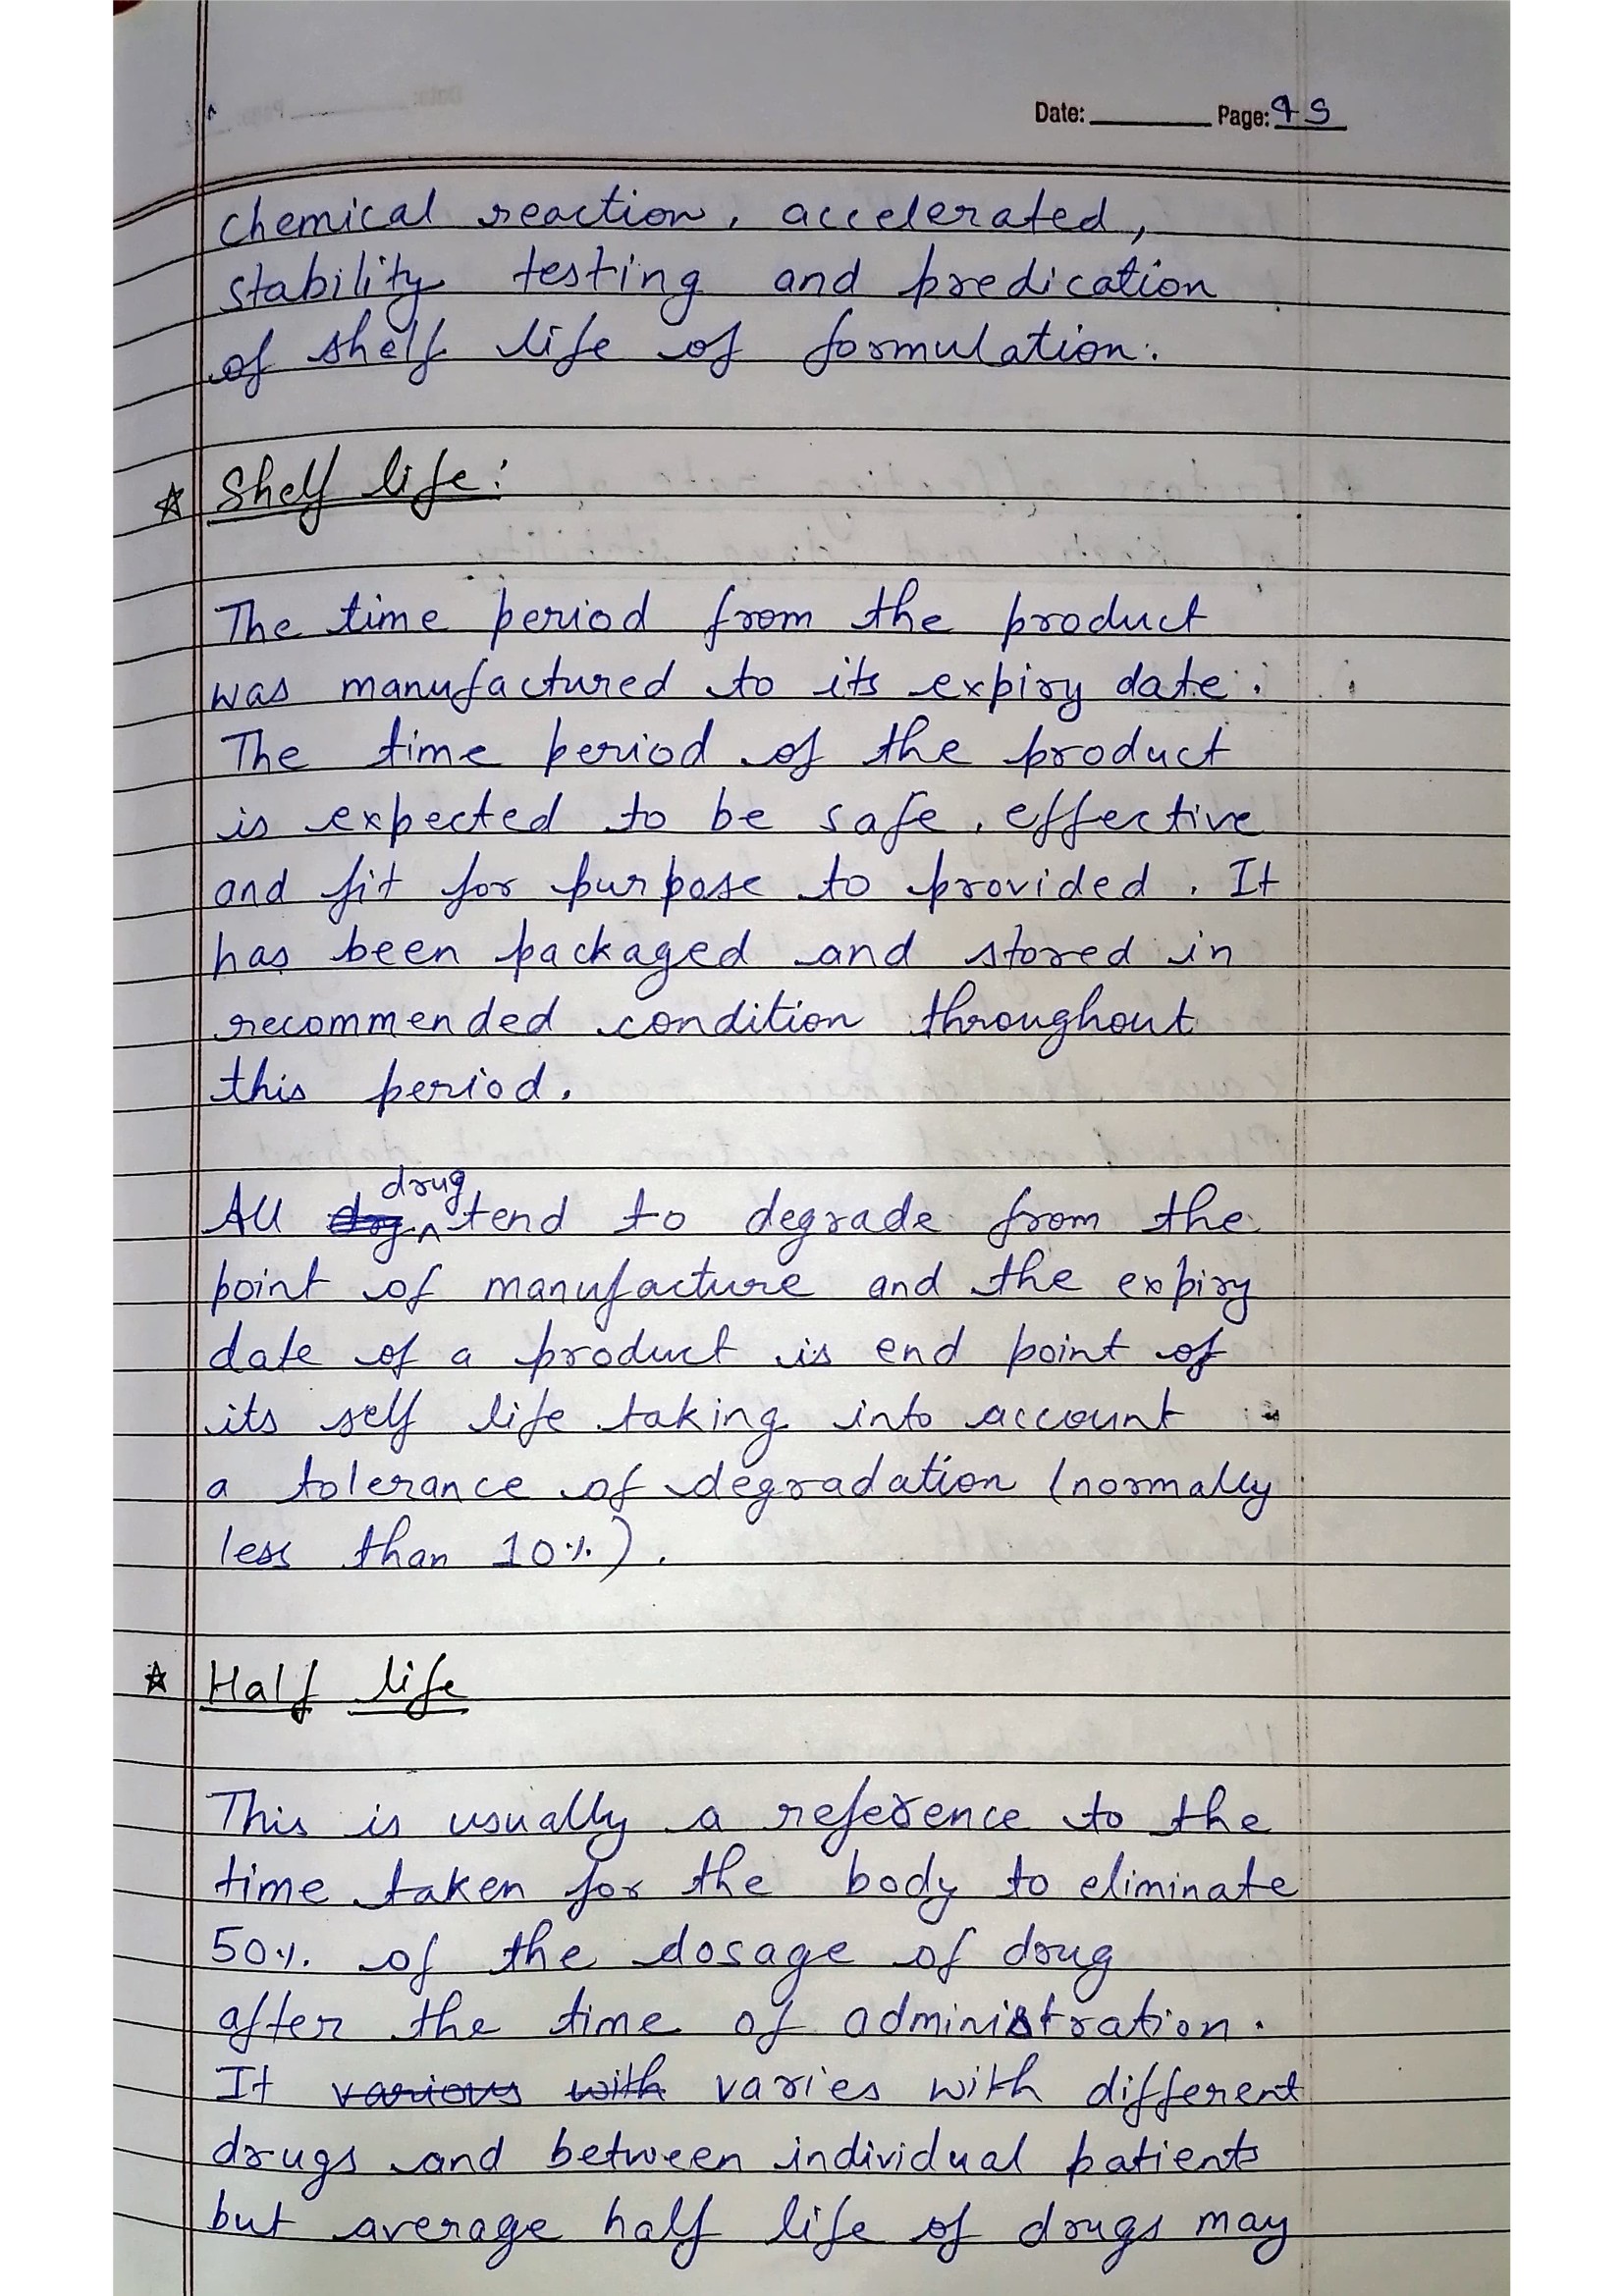 Date: Page: 95
chemical reaction, accelerated,
stability testing and predication
of shelf life of formulation.
☆ Shelf life:
The time period from the product
was manufactured to its expiry date.
The time period of the product
is expected to be safe, effective
and fit for purpose to provided. It
has been packaged and stored in
recommended condition throughout
this period.
drug
All tend to degrade from the
point of manufacture and the expiry
date of a product is end point of
its self life taking into account
a tolerance of degradation (normally
less than 10%).
☆ Half life
This is usually a reference to the
time taken for the body to eliminate
50% of the dosage of drug
after the time of administration.
It various with varies with different
drugs and between individual patients
but average half life of drugs may